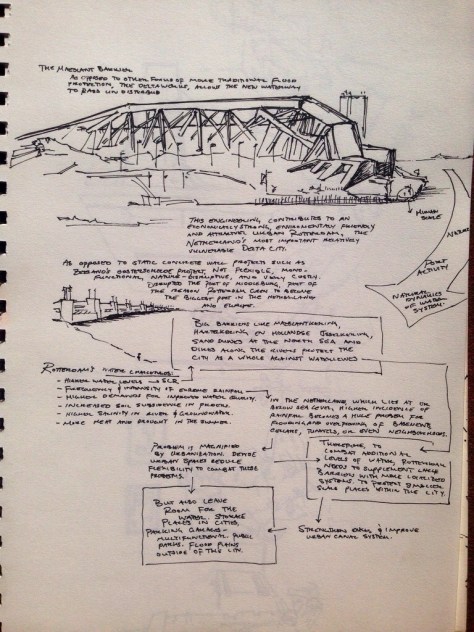 THE MAESLANT BARRIER
AS OPPOSED TO OTHER FORMS OF MORE TRADITIONAL FLOOD
PROTECTION, THE DELTAWORKS, ALLOWS THE NEW WATERWAY
TO PASS UNDISTURBED
HUMAN
SCALE
THIS ENGINEERING, CONTRIBUTES TO AN
ECONOMICALLY STRONG, ENVIRONMENTALLY FRIENDLY
AND ATTRACTIVE URBAN ROTTERDAM, THE
NETHERLAND'S MOST IMPORTANT RELATIVELY
VULNERABLE DELTA CITY.
PORT
ACTIVITY
NATURAL DYNAMICS
OF WATER
SYSTEM
AS OPPOSED TO STATIC CONCRETE WALL PROJECTS SUCH AS
OOSTERSCHELDE PROJECT, NOT FLEXIBLE, MONO-
FUNCTIONAL, NATURE-DISRUPTIVE, AND VERY COSTLY.
DISRUPTED THE PORT OF MIDDELBURG, PART OF
THE REASON ROTTERDAM GREW TO BECOME
THE BIGGEST PORT IN THE NETHERLANDS
AND EUROPE.
BIG BARRIERS LIKE MAESLANTKERING,
HARTELKERING, EN HOLLANDSE IJSSELKERING,
SAND DUNES AT THE NORTH SEA AND
DIKES ALONG THE RIVERS PROTECT THE
CITY AS A WHOLE AGAINST WATER
ROTTERDAM'S WATER CHALLENGES:
- HIGHER WATER LEVELS → SLR
- FREQUENCY & INTENSITY OF EXTREME RAINFALL
- HIGHER DEMANDS FOR IMPROVED WATER QUALITY.
- INCREASED SOIL SUBSIDENCE IN
- HIGHER SALINITY IN RIVER & GROUNDWATER.
- MORE HEAT AND DROUGHT IN THE SUMMER.
IN THE NETHERLANDS, WHICH LIES AT OR
BELOW SEA LEVEL, HIGHER INCIDENCE OF
RAINFALL BECOMES A HUGE PROBLEM FOR
FLOODING AND OVERFLOWING OF BASEMENTS
CELLARS, TUNNELS, OR EVEN NEIGHBORHOODS.
PROBLEM IS MAGNIFIED
BY URBANIZATION. DENSE
URBAN SPACES REDUCE
FLEXIBILITY TO COMBAT THESE
PROBLEMS.
THEREFORE, TO
COMBAT ADDITIONAL
LEVELS OF WATER, ROTTERDAM
NEEDS TO SUPPLEMENT LARGE
BARRIERS WITH MORE LOCALIZED
SYSTEMS TO PROTECT SMALLER
SCALE PLACES WITHIN THE CITY.
BUT ALSO LEAVE
ROOM FOR THE
WATER. STORAGE
PLACES IN CITIES,
PARKING GARAGES -
MULTIFUNCTIONAL. PUBLIC
PARKS. FLOOD PLAINS
OUTSIDE OF THE CITY.
STRENGTHEN DIKES & IMPROVE
URBAN CANAL SYSTEM.